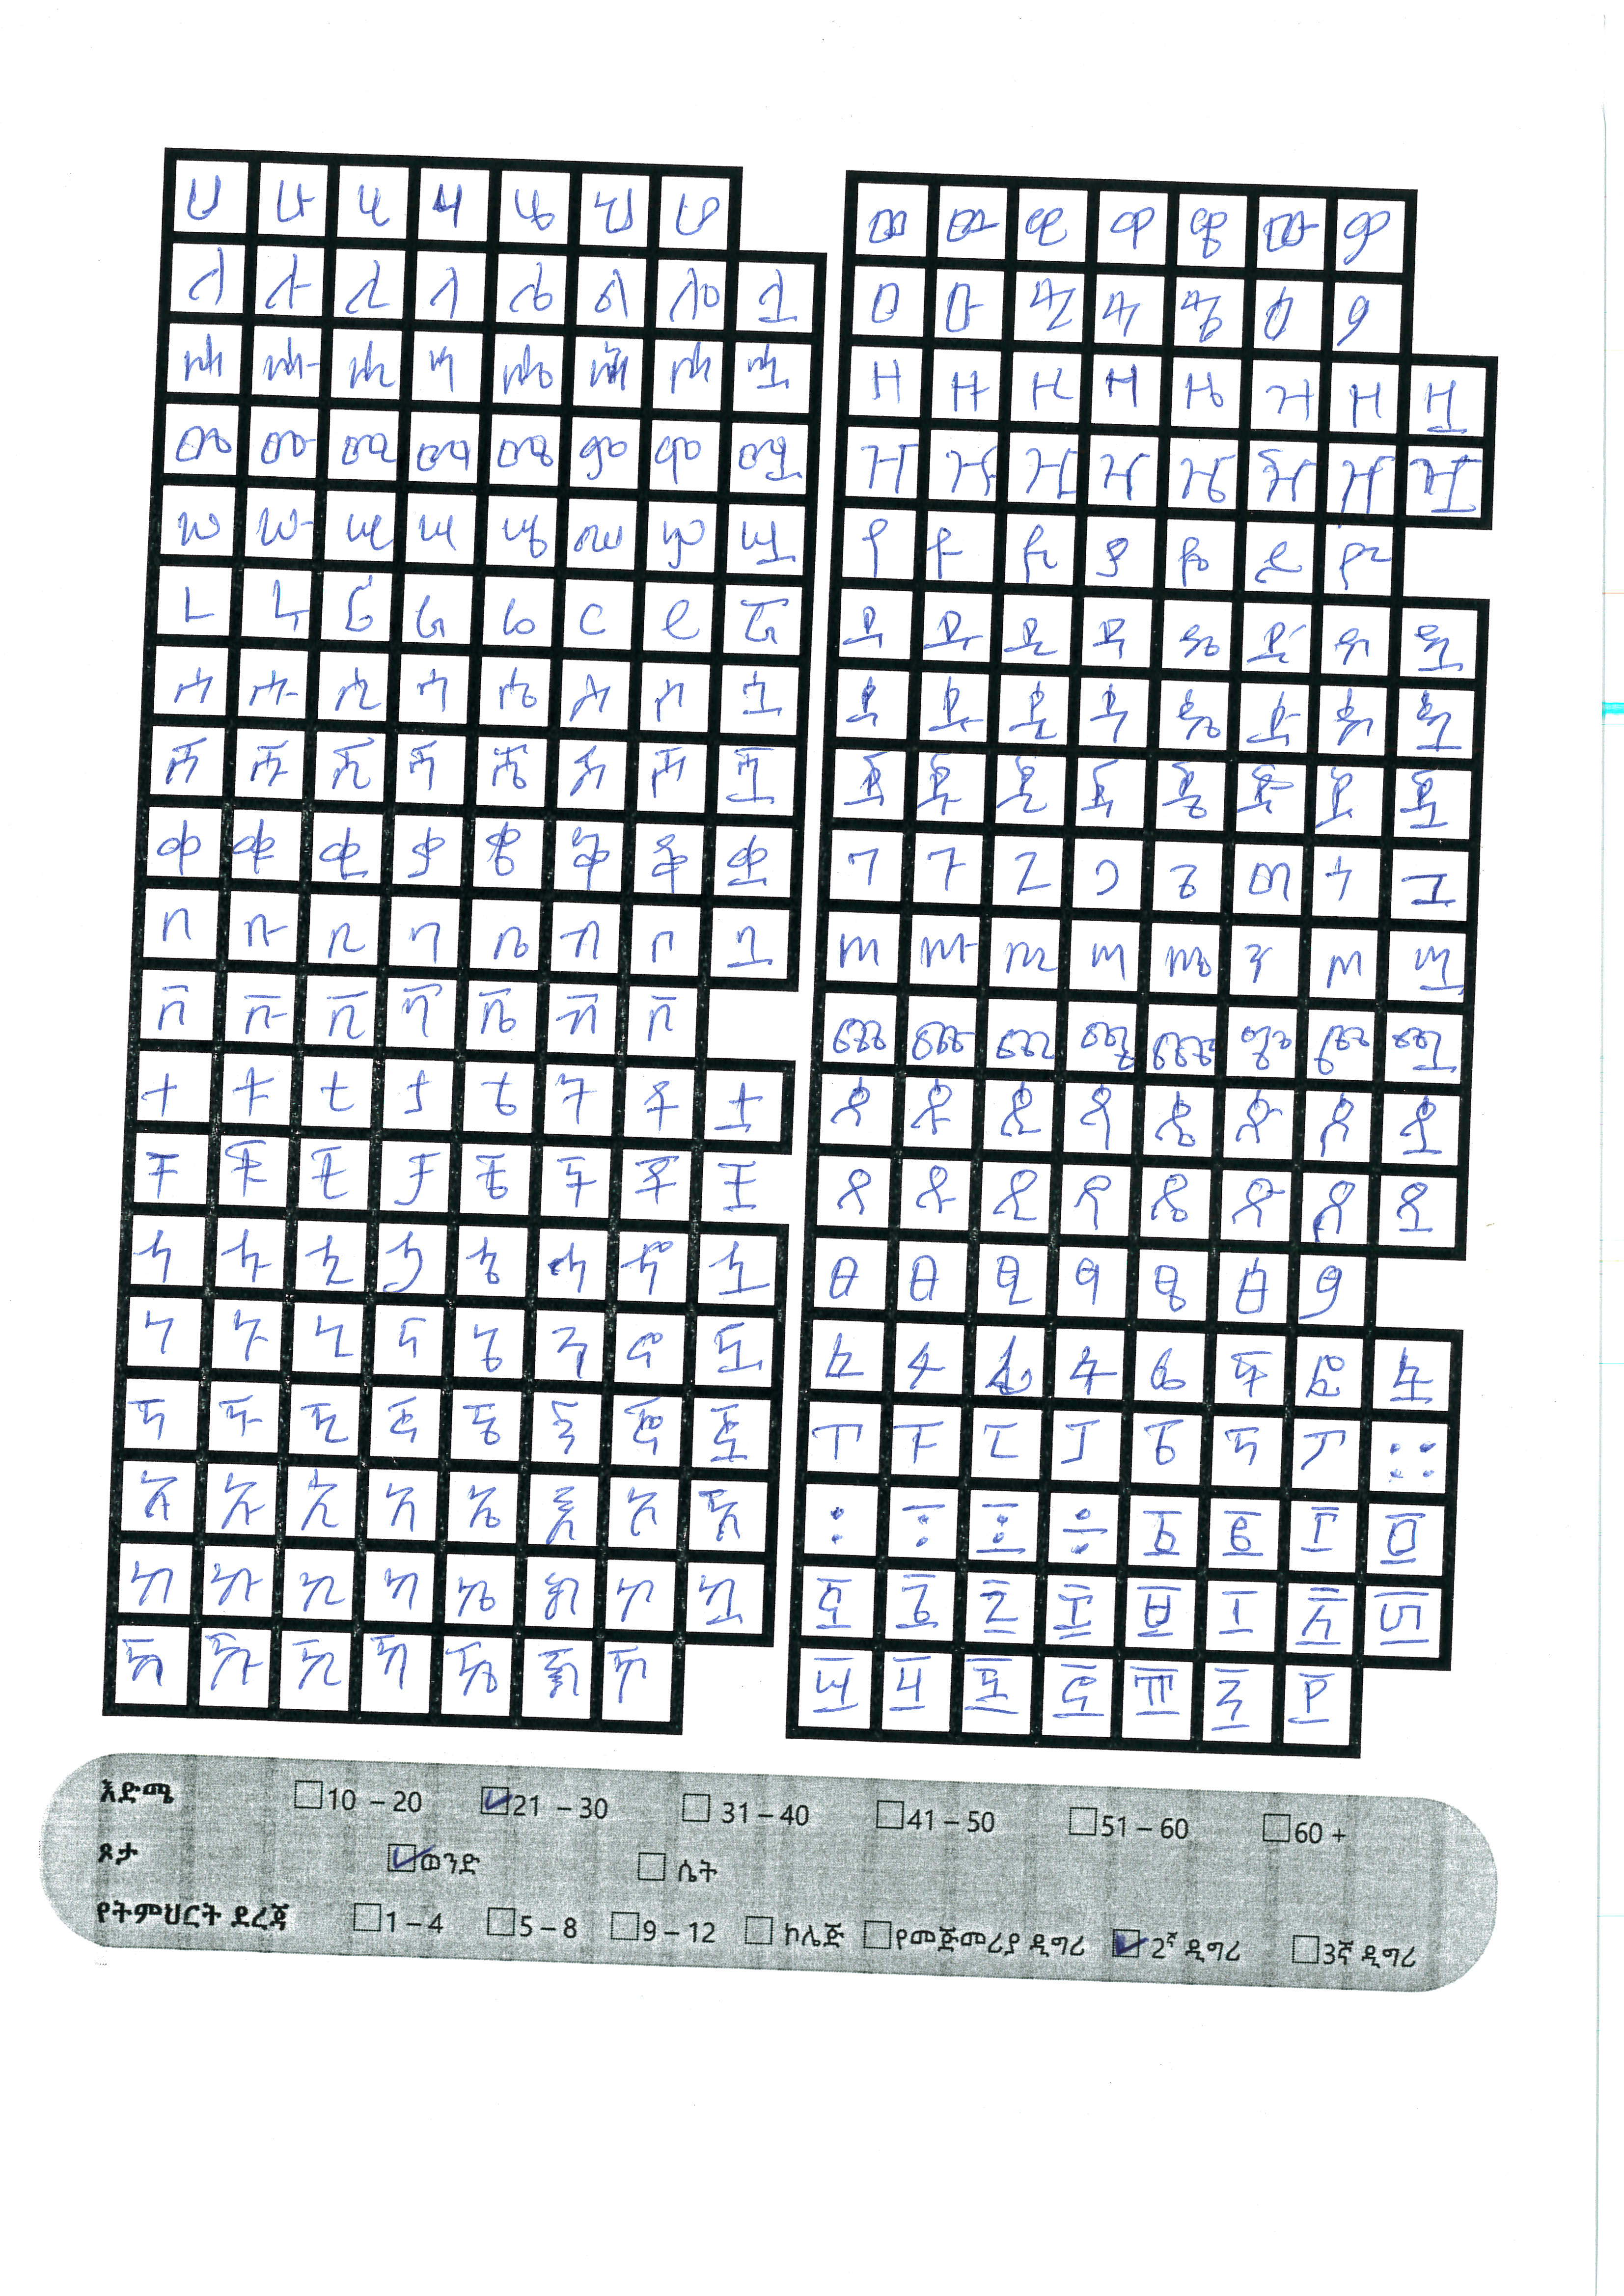 ሀ ሁ ሂ ሃ ሄ ህ ሆ
ለ ሉ ሊ ላ ሌ ል ሎ ሏ
ሐ ሑ ሒ ሓ ሔ ሕ ሖ ሗ
መ ሙ ሚ ማ ሜ ም ሞ ሟ
ሠ ሡ ሢ ሣ ሤ ሥ ሦ ሧ
ረ ሩ ሪ ራ ሬ ር ሮ ሯ
ሰ ሱ ሲ ሳ ሴ ስ ሶ ሷ
ሸ ሹ ሺ ሻ ሼ ሽ ሾ ሿ
ቀ ቁ ቂ ቃ ቄ ቅ ቆ ቋ
በ ቡ ቢ ባ ቤ ብ ቦ ቧ
ቨ ቩ ቪ ቫ ቬ ቭ ቮ
ተ ቱ ቲ ታ ቴ ት ቶ ቷ
ቸ ቹ ቺ ቻ ቼ ች ቾ ቿ
ኀ ኁ ኂ ኃ ኄ ኅ ኆ ኋ
ነ ኑ ኒ ና ኔ ን ኖ ኗ
ኘ ኙ ኚ ኛ ኜ ኝ ኞ ኟ
አ ኡ ኢ ኣ ኤ እ ኦ ኧ
ከ ኩ ኪ ካ ኬ ክ ኮ ኳ
ኸ ኹ ኺ ኻ ኼ ኽ ኾ
ወ ዉ ዊ ዋ ዌ ው ዎ
ዐ ዑ ዒ ዓ ዔ ዕ ዖ
ዘ ዙ ዚ ዛ ዜ ዝ ዞ ዟ
ዠ ዡ ዢ ዣ ዤ ዥ ዦ ዧ
የ ዩ ዪ ያ ዬ ይ ዮ
ደ ዱ ዲ ዳ ዴ ድ ዶ ዷ
ጀ ጁ ጂ ጃ ጄ ጅ ጆ ጇ
ገ ጉ ጊ ጋ ጌ ግ ጎ ጓ
ጠ ጡ ጢ ጣ ጤ ጥ ጦ ጧ
ጨ ጩ ጪ ጫ ጬ ጭ ጮ ጯ
ጰ ጱ ጲ ጳ ጴ ጵ ጶ ጷ
ጸ ጹ ጺ ጻ ጼ ጽ ጾ ጿ
ፀ ፁ ፂ ፃ ፄ ፅ ፆ
ፈ ፉ ፊ ፋ ፌ ፍ ፎ ፏ
ፐ ፑ ፒ ፓ ፔ ፕ ፖ ።
፡ ፣ ፤ ÷ ፩ ፪ ፫ ፬
፭ ፮ ፯ ፰ ፱ ፲ ፳ ፴
፵ ፶ ፷ ፸ ፹ ፺ ፻
እድሜ 10 – 20 21 – 30 31 – 40 41 – 50 51 – 60 60 +
ጾታ ወንድ ሴት
የትምህርት ደረጃ 1 – 4 5 – 8 9 – 12 ኮሌጅ የመጅመሪያ ዲግሪ 2ኛ ዲግሪ 3ኛ ዲግሪ